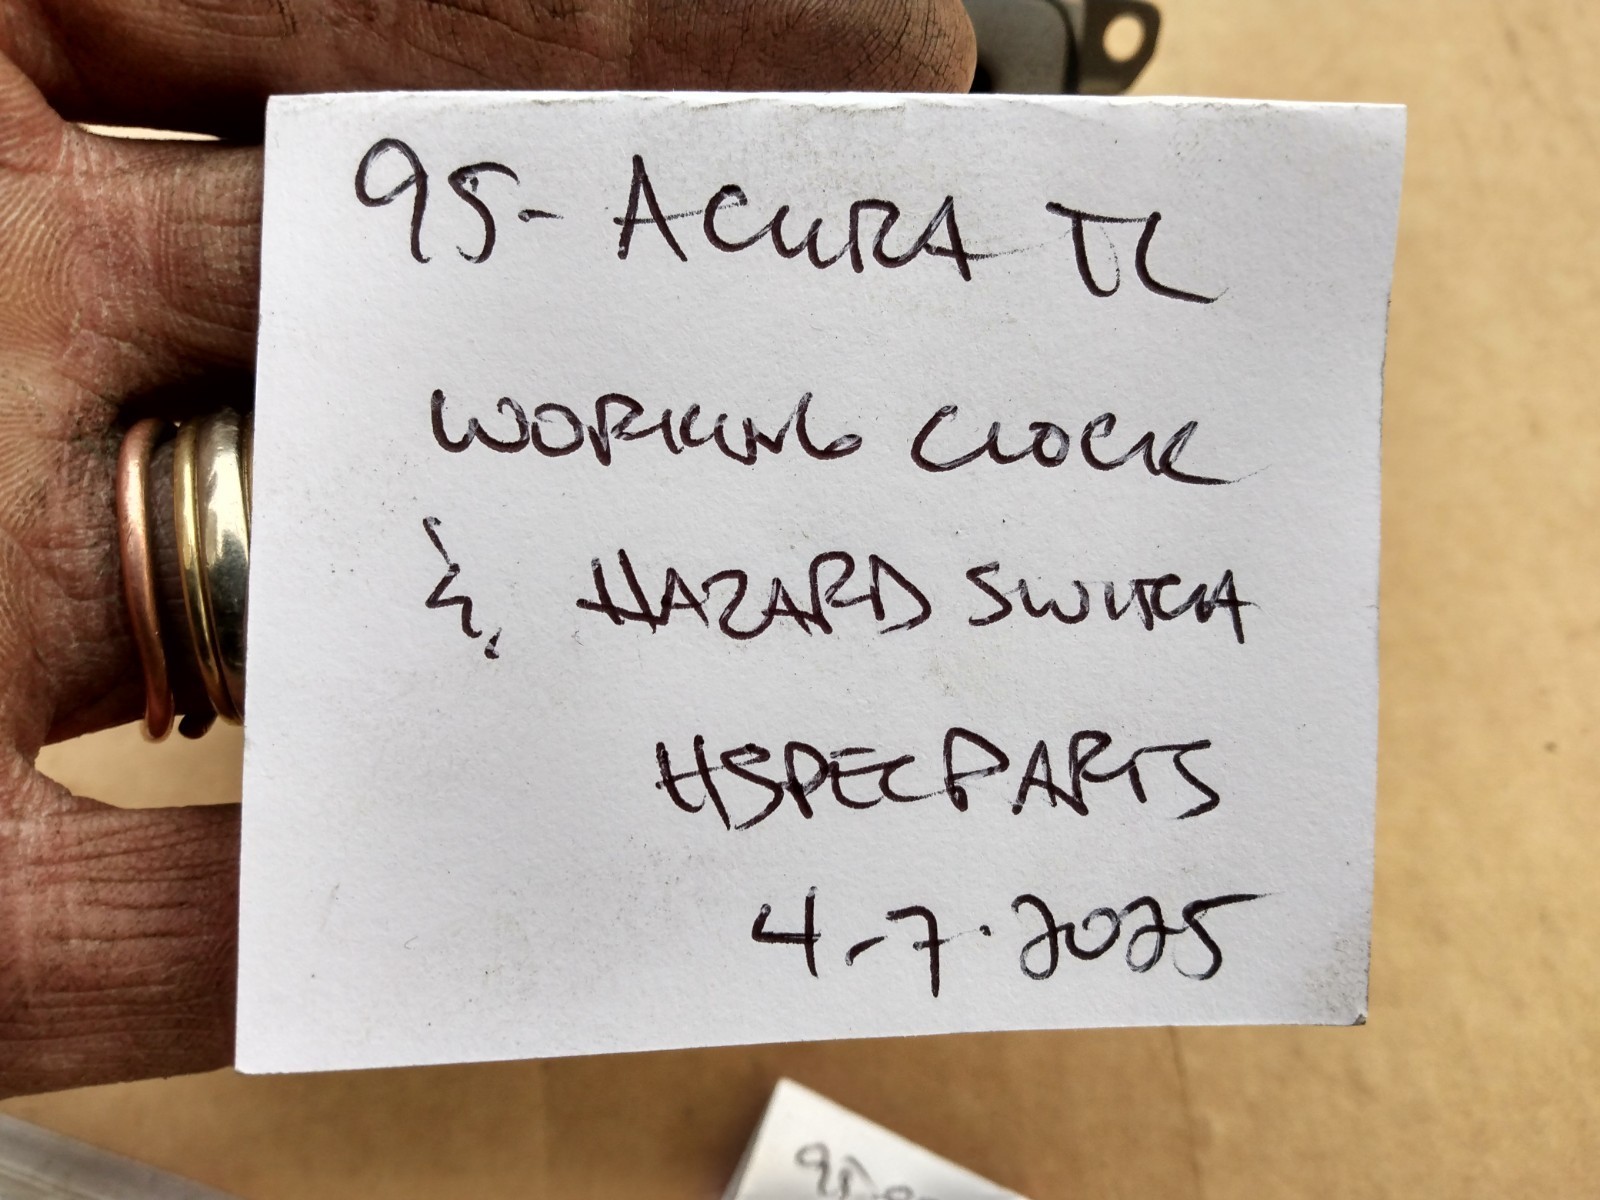 95- ACURA TL
WORKING CLOCK
& HAZARD SWITCH
HSPECPARTS
4-7.2025